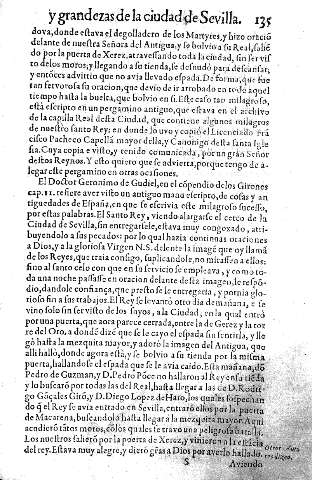 y grandezas de la ciudad de Sevilla. 135
dova, donde estava el degolladero de los Martyres, y hizo oració
delante de nuestra Señora del Antigua, y se bolvio a su Real, salié
do por la puerta de Xerez, atravessando toda la ciudad, sin ser vis
to de los moros, y llegando a su tienda, se desnudó para descansar,
y entoces advittio que no avia llevado espada. De forma, que fue
tan fervorosa su oracion, que devio de ir arrobado en todo aquel
tiempo hasta la buelta, que bolvio en si. Este caso tan milagroso,
está escripto en un pergamino antiguo, que estava en el archivo
de la capilla Real desta Ciudad, que contiene algunos milagros
de nuestro santo Rey: en donde lo uvo y copió el Licenciado Frá
cisco Pacheco Capellá mayor della, y Canonigo desta santa Igle
sia. Cuya copia e visto, y tenido comunicada, por un gran Señor
destos Reynos. Y esto quiero que se advierta, porque tengo de a-
legar este pergamino en otras ocasiones.
El Doctor Geronimo de Gudiel, en el cópendio de los Girones
cap. 11. refiere aver visto un antiguo mano escripto, de cosas y an
tiguedades de España, en que se escrivia este milagroso sucesso,
por estas palabras. El Santo Rey, viendo alargarse el cerco de la
Ciudad de Sevilla, sin entregarsele, estava muy congoxado, attri-
buyendolo a sus pecados: por lo qual hazia continuas oraciones
a Dios, y a la gloriosa Virgen N. S. delante la imagé que oy llamá
de los Reyes, que traia consigo, suplicandole, no mirasse a ellos:
sino al santo celo con que en su servicio se empleava, y como to-
da una noche passasse en oracion delante desta imagen, le respó-
dio, dandole confiança, que presto se le entregaria, y pornia glo-
rioso fin a sus trabajos. El Rey se levantó otro dia demañana, e se
vino solo sin ser visto de los suyos, a la Ciudad, en la qual entró
por una puerta, que aora parece cerrada, entre la de Gerez y la tor
re del Oro, a donde dizé que se le cayo el espada sin sentirla, y lle-
gó hasta la mezquita mayor, y adoró la imagen del Antigua, que
alli halló, donde agora está, y se bolvio a su tienda por la misma
puerta, hallandose el espada que se le avia caido. Esta mañana, dó
Pedro de Guzman, y D. Pedro Póce no hallaron al Rey en su tiéda
y lo buscaró por todas las del Real, hasta llegar a las de D. Rodri-
go Góçales Giró, y D. Diego Lopez de Haro, los quales sospechan
do q el Rey se avia entrado en Sevilla, entraró ellos por la puerta
de Macarena, buscandolo hasta llegar a la mezquita mayor. Aqui
acudieró tátos moros, cólos quales se travó una peligrosa batalla.
Los nuestros salieró por la puerta de Xerez, y vinieron a la estácia
del rey. Estava muy alegre, y dieró gras a Dios por averlo hallado.
S Aviendo